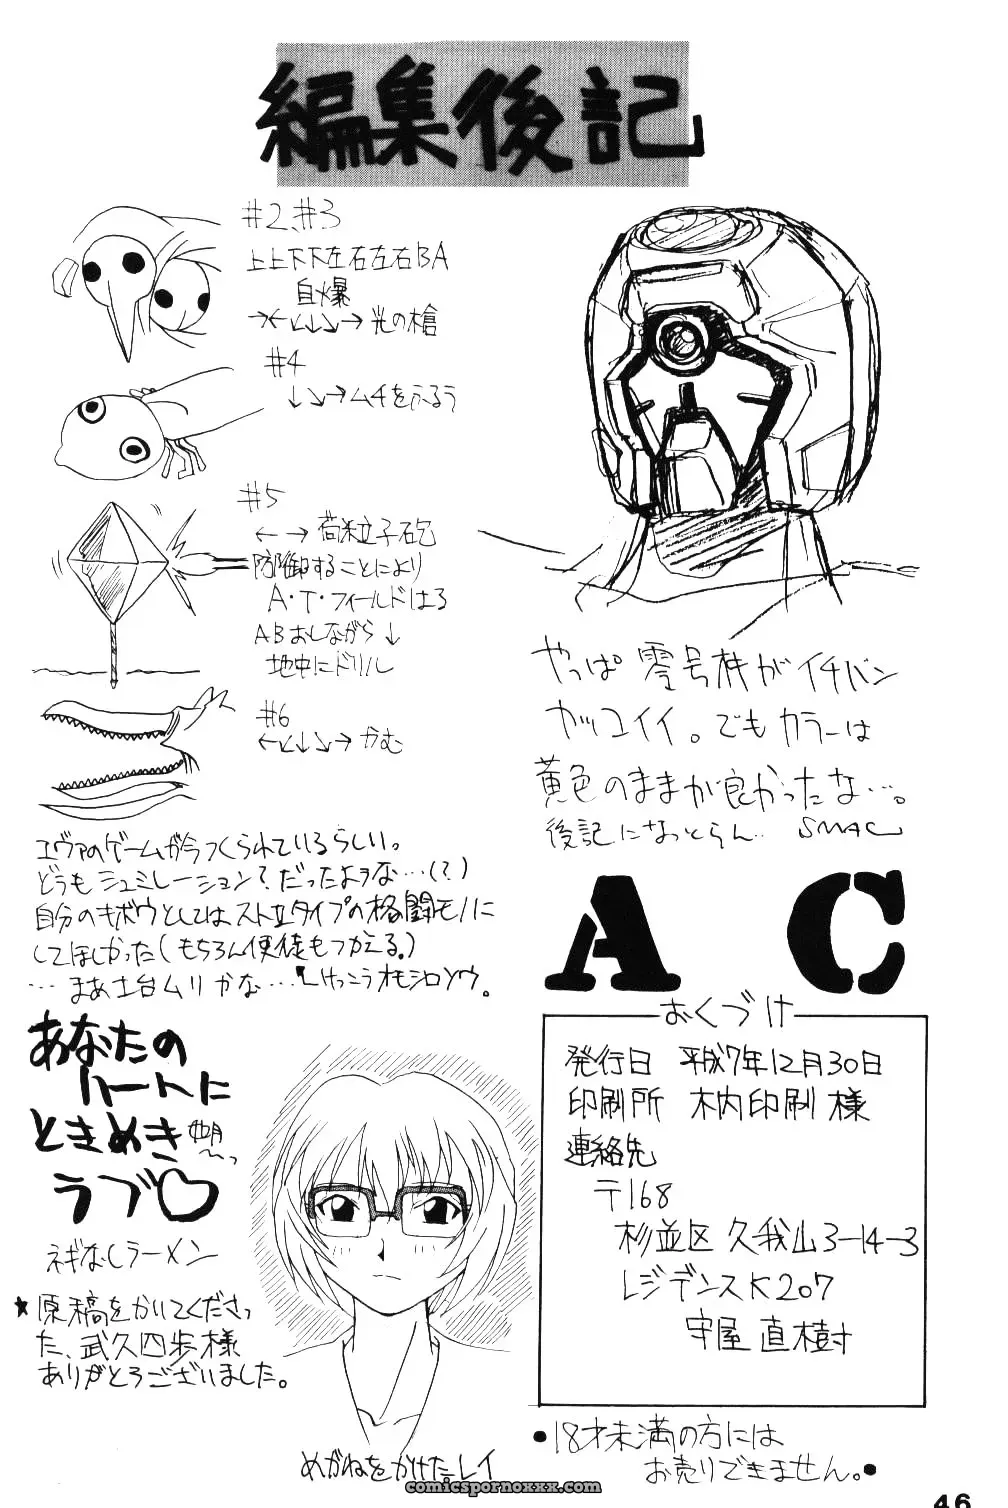 編集後記
#2、#3
上上下下左右左右BA
自爆
→←↙↓↘→ 光の槍
#4
↓↘→ムチをふるう
#5
← → 荷粒子砲
防御することにより
A・T・フィールドはる
ABおしながら↓
地中にドリル
#6
←↙↓↘→ かむ
エヴァのゲームが今つくられているらしい。
どうもシュミレーション?だったよヲな…(?)
自分のキボウとしてはストIIタイプの格闘モノに
してほしかった(もちろん使徒もつかえる。)
…まあ土台ムリかな…
けっこうオモシロソウ。
やっぱ零号機がイチバン
カッコイイ。でもカラーは
黄色のままが良かったな…。
後記になっとらん.. SMAC
A C
あなたの
ハートに
ときめき
ラブ♡
ネギなしラーメン
★原稿をかいてくださっ
た、武久四歩様
ありがとうございました。
めがねをかけたレイ
おくづけ
発行日 平成7年12月30日
印刷所 木内印刷 様
連絡先
〒168
杉並区 久我山3-14-3
レジデンスK207
守屋 直樹
●18才未満の方には
お売りできません。●
comicspornoxxx.com
46